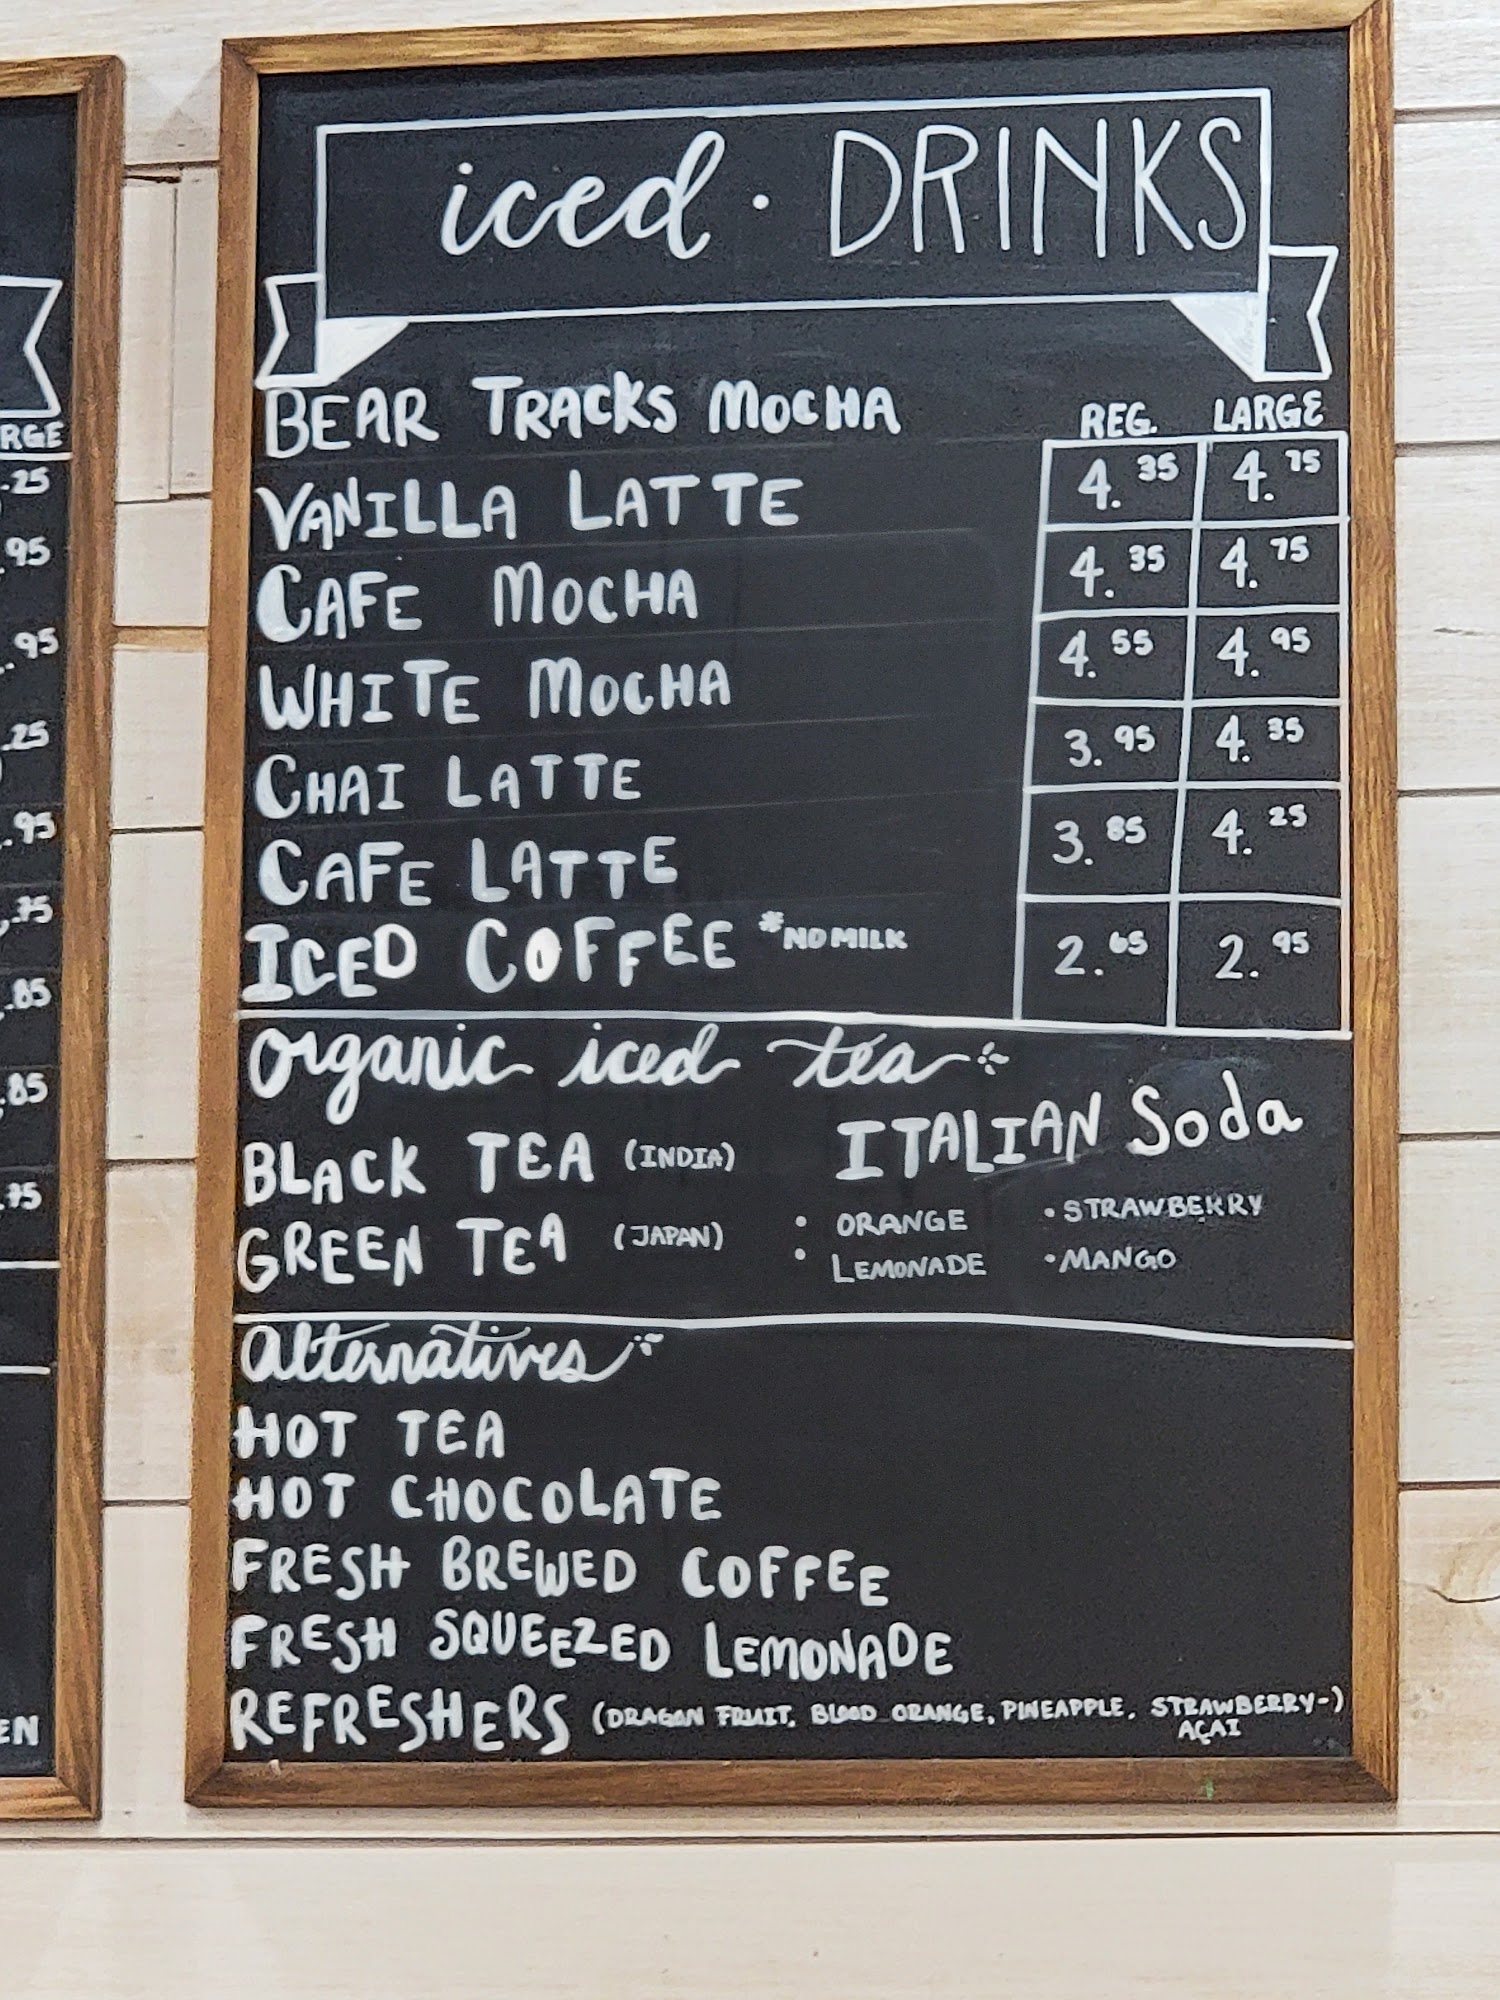 iced · DRINKS
BEAR TRACKS MOCHA
REG. LARGE
VANILLA LATTE 4.35 4.75
CAFE MOCHA 4.35 4.75
WHITE MOCHA 4.55 4.95
CHAI LATTE 3.95 4.35
CAFE LATTE 3.85 4.25
ICED COFFEE *NO MILK 2.65 2.95
Organic iced tea
BLACK TEA (INDIA)
GREEN TEA (JAPAN)
ITALIAN Soda
• ORANGE • STRAWBERRY
• LEMONADE • MANGO
alternatives
HOT TEA
HOT CHOCOLATE
FRESH BREWED COFFEE
FRESH SQUEEZED LEMONADE
REFRESHERS (DRAGON FRUIT, BLOOD ORANGE, PINEAPPLE, STRAWBERRY-)
AÇAI
RGE
.25
.95
.95
.25
.95
.75
.85
.85
.75
EN